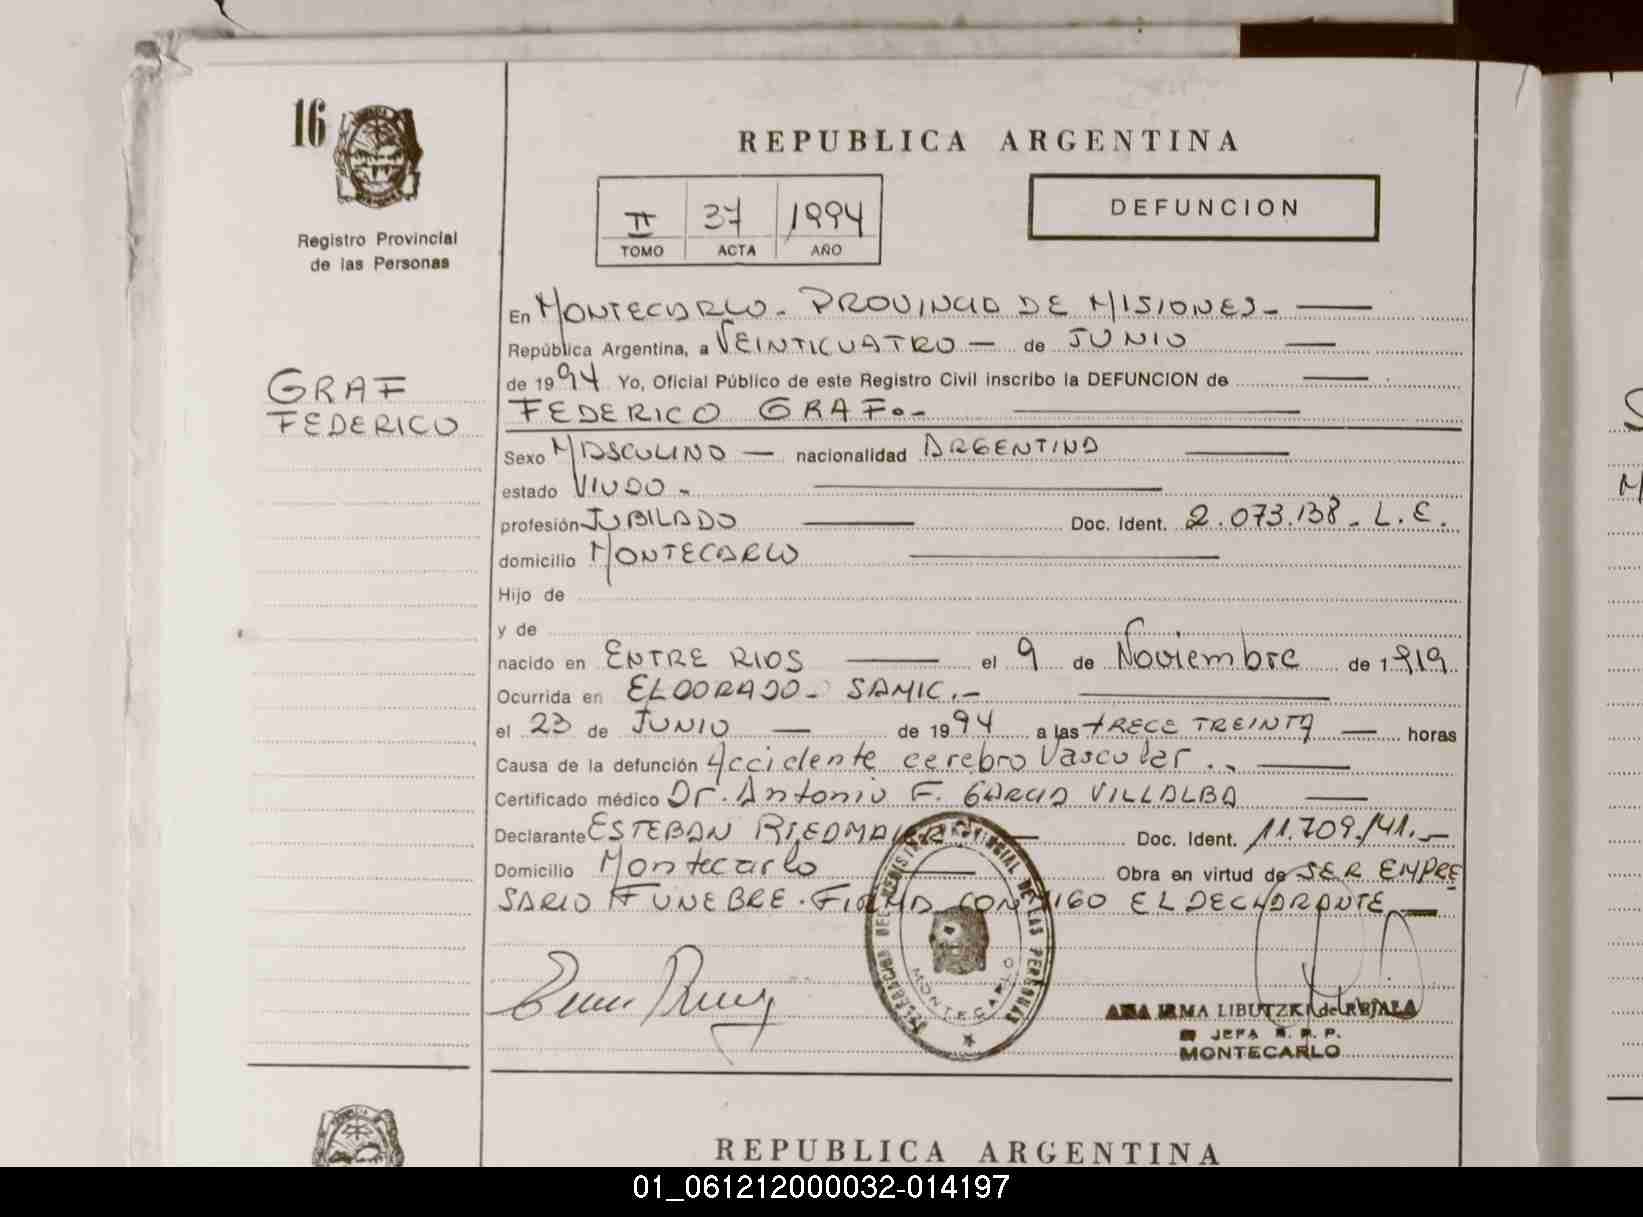 16
Registro Provincial
de las Personas
GRAF
FEDERICO
REPUBLICA ARGENTINA
II 37 1994
TOMO ACTA AÑO
DEFUNCION
En MONTECARLO - PROVINCIA DE MISIONES -
República Argentina, a VEINTICUATRO — de JUNIO
de 1994 Yo, Oficial Público de este Registro Civil inscribo la DEFUNCION de
FEDERICO GRAF.-
Sexo MASCULINO — nacionalidad ARGENTINA
estado VIUDO -
profesión JUBILADO Doc. Ident. 2.073.138 - L.E.
domicilio MONTECARLO
Hijo de
y de
nacido en ENTRE RIOS el 9 de Noviembre de 1919
Ocurrida en ELDORADO - SAMIC.-
el 23 de JUNIO — de 1994 a las TRECE TREINTA — horas
Causa de la defunción Accidente cerebro Vascular..
Certificado médico Dr. Antonio F. GARCIA VILLALBA
Declarante ESTEBAN RIEDMAIER Doc. Ident. 11.709.141.-
Domicilio Montecarlo Obra en virtud de SER EMPRE
SARIO FUNEBRE. FIRMA CONMIGO EL DECLARANTE
PROVINCIAL DE LAS PERSONAS
MONTECARLO
ANA IRMA LIBUTZKI de REJALA
JEFA R. P. P.
MONTECARLO
REPUBLICA ARGENTINA
01_061212000032-014197